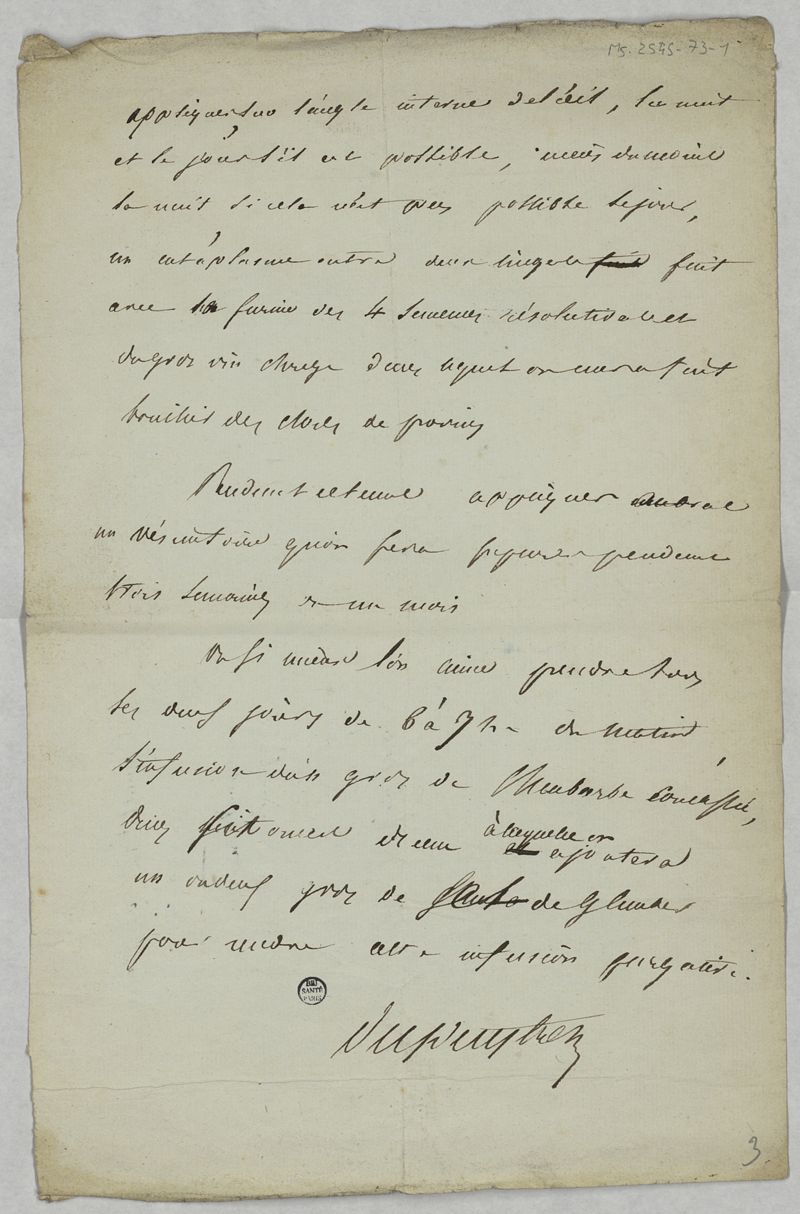 Ms. 2545-73-1
appliquer sur l'angle interne de l'œil, la nuit
et le jour s'il est possible, mais du moins
la nuit si cela n'est pas possible le jour,
un cataplasme entre deux linges fait
avec la farine des 4 semences résolutives et
du gros vin chargé dans lequel on aura fait
bouillir des roses de provins
Pendant ce tems appliquer au bras
un vésicatoire qu'on fera suppurer pendant
trois semaines ou un mois
ou si mieux l'on aime prendre tous
les deux jours de 6 à 7 h. du matin
l'infusion d'un gros de Rhubarbe concassée,
dans huit onces d'eau à laquelle on
ajoutera
un ou deux gros de de Glauber
pour rendre cette infusion purgative.
BIU
SANTÉ
PARIS
Dupuytren
3